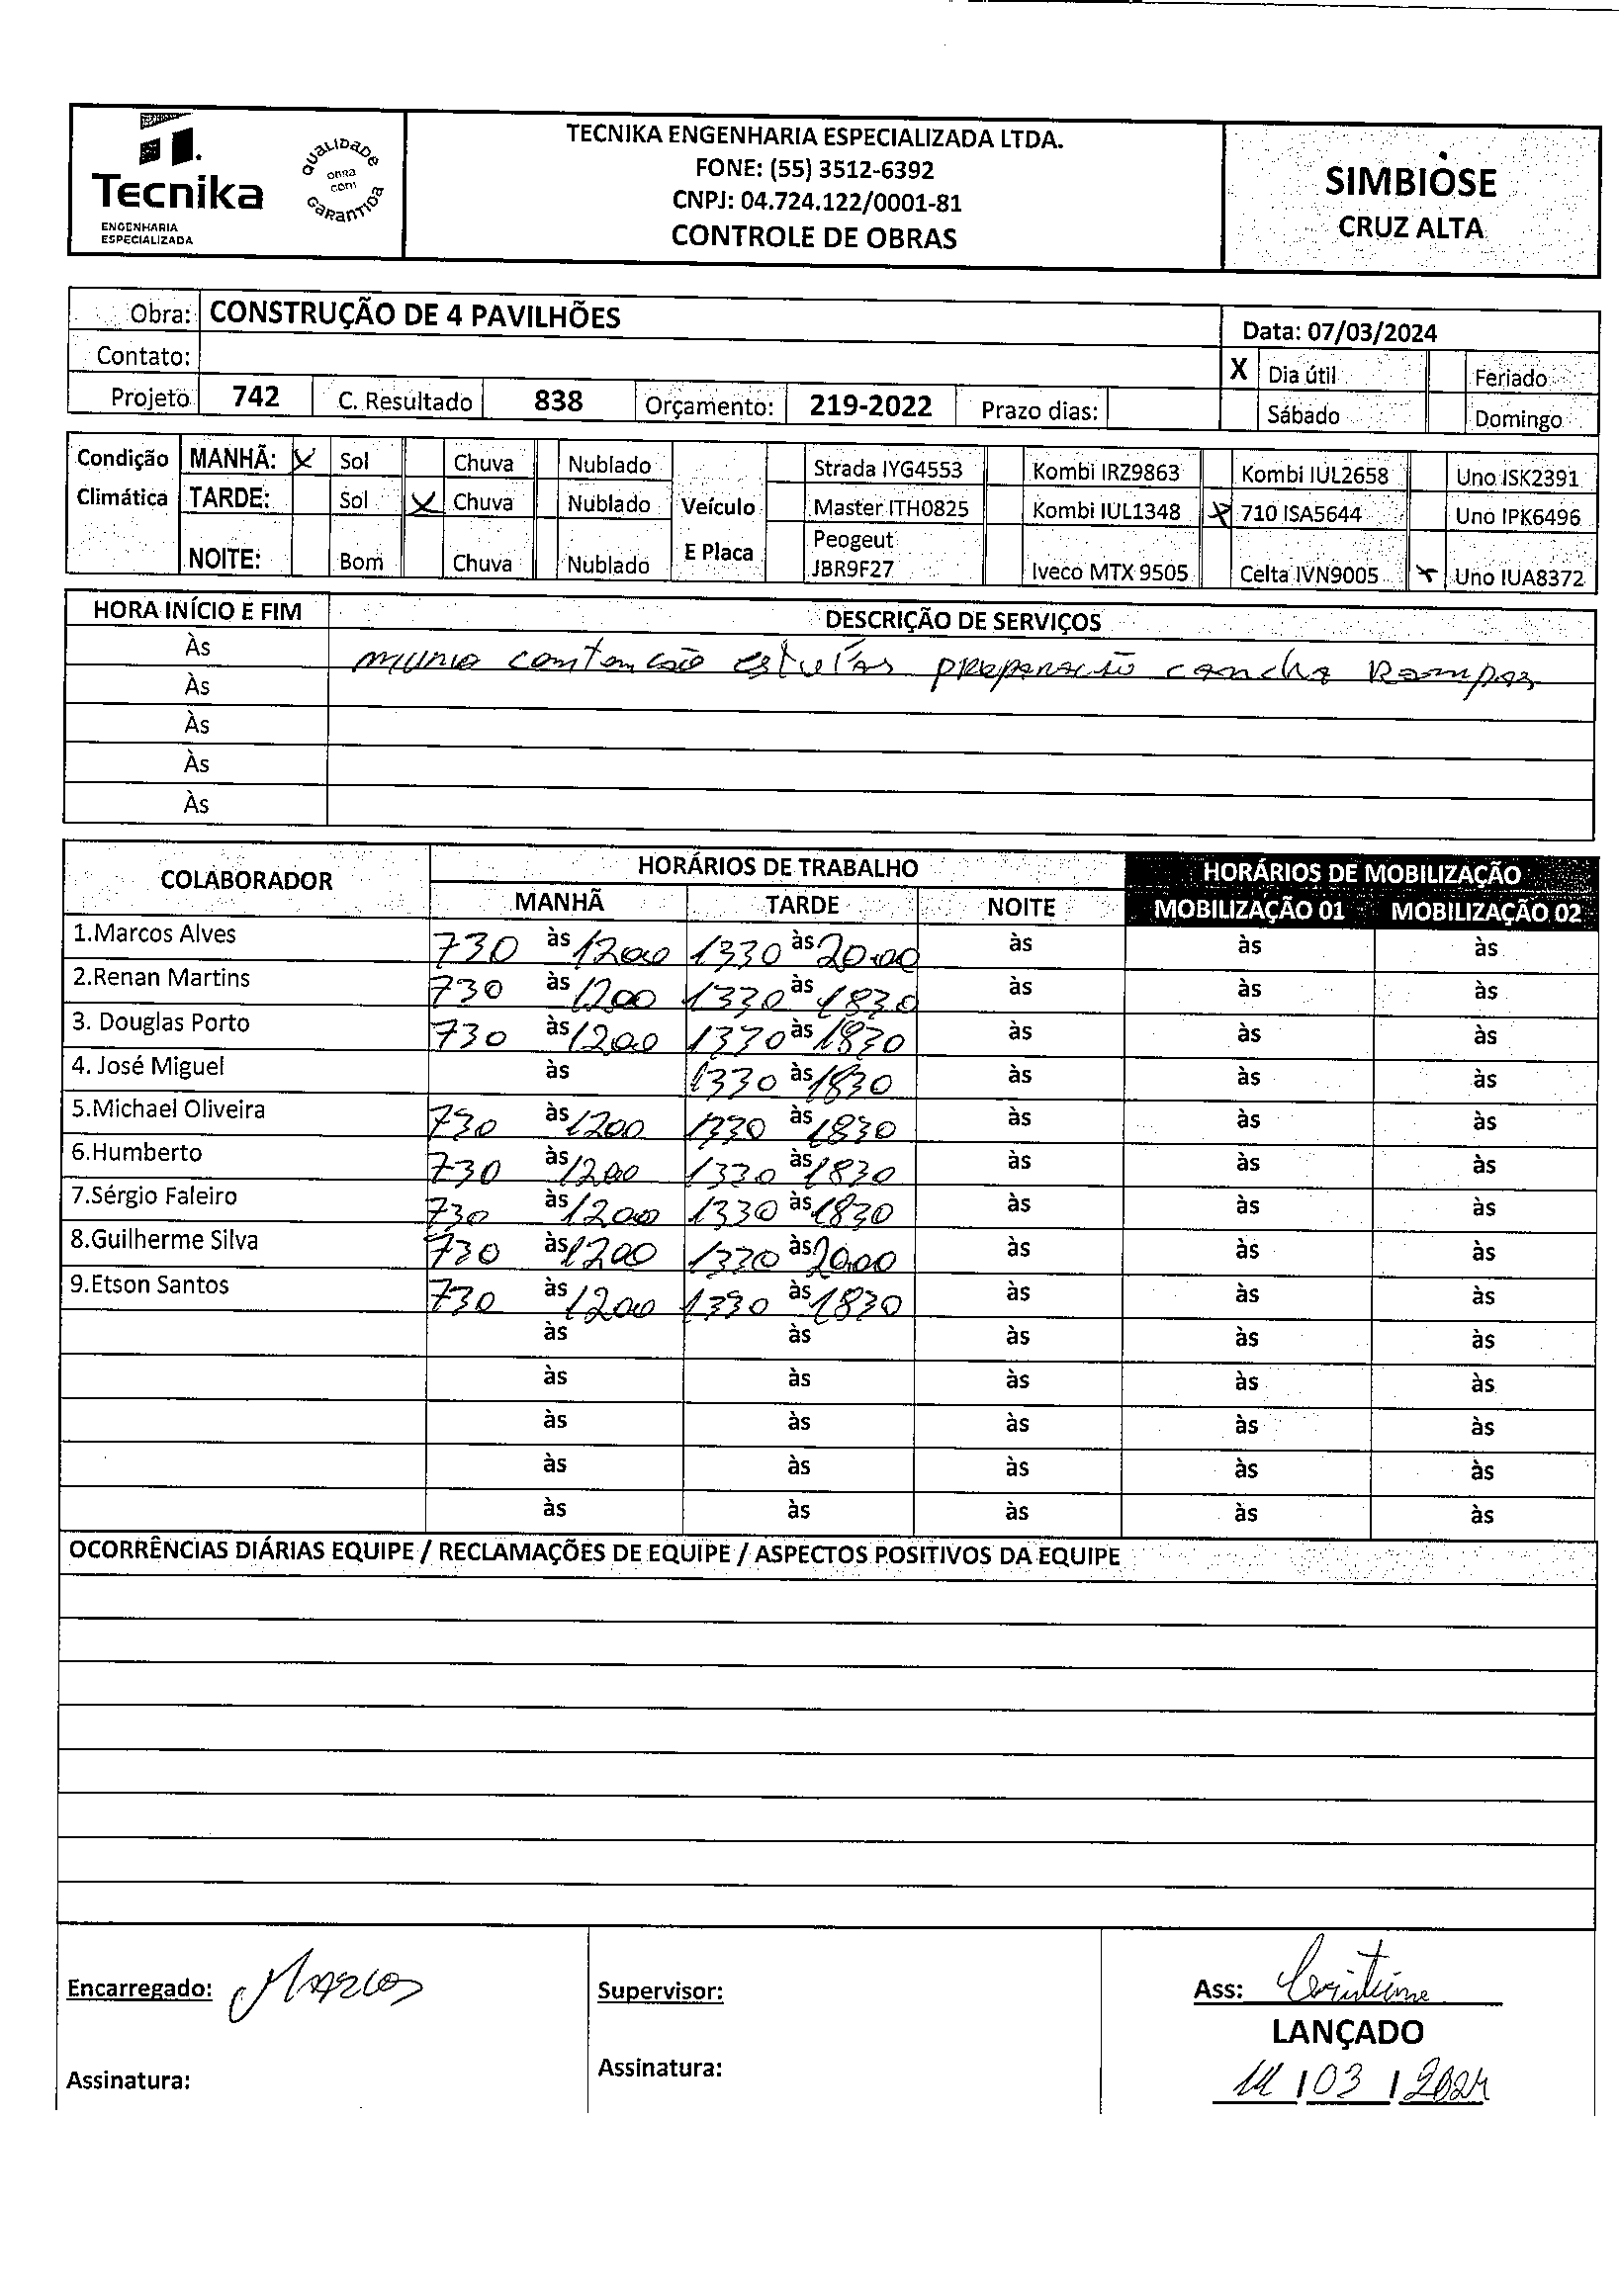 Tecnika
ENGENHARIA
ESPECIALIZADA
QUALIDADE
OBRA
COM
GARANTIDA
TECNIKA ENGENHARIA ESPECIALIZADA LTDA.
FONE: (55) 3512-6392
CNPJ: 04.724.122/0001-81
CONTROLE DE OBRAS
SIMBIOSE
CRUZ ALTA
Obra: CONSTRUÇÃO DE 4 PAVILHÕES
Data: 07/03/2024
Contato:
X Dia útil Feriado
Projeto 742 C. Resultado 838 Orçamento: 219-2022 Prazo dias:
Sábado Domingo
Condição MANHÃ: X Sol Chuva Nublado Strada IYG4553 Kombi IRZ9863 Kombi IUL2658 Uno ISK2391
Climática TARDE: Sol X Chuva Nublado Veículo Master ITH0825 Kombi IUL1348 X 710 ISA5644 Uno IPK6496
NOITE: Bom Chuva Nublado E Placa Peogeut JBR9F27 Iveco MTX 9505 Celta IVN9005 X Uno IUA8372
HORA INÍCIO E FIM DESCRIÇÃO DE SERVIÇOS
Às preparação cancha Rampas
Às
Às
Às
Às
COLABORADOR HORÁRIOS DE TRABALHO HORÁRIOS DE MOBILIZAÇÃO
MANHÃ TARDE NOITE MOBILIZAÇÃO 01 MOBILIZAÇÃO 02
1.Marcos Alves 730 às 1200 1330 às 20.00 às às às
2.Renan Martins 730 às 1200 1330 às 1830 às às às
3. Douglas Porto 730 às 1200 1330 às 1830 às às às
4. José Miguel às 1330 às 1830 às às às
5.Michael Oliveira 730 às 1200 1330 às 1830 às às às
6.Humberto 730 às 1200 1330 às 1830 às às às
7.Sérgio Faleiro 730 às 1200 1330 às 1830 às às às
8.Guilherme Silva 730 às 1200 1330 às 20.00 às às às
9.Etson Santos 730 às 1200 1330 às 1830 às às às
às às às às às
às às às às às
às às às às às
às às às às às
às às às às às
OCORRÊNCIAS DIÁRIAS EQUIPE / RECLAMAÇÕES DE EQUIPE / ASPECTOS POSITIVOS DA EQUIPE
Encarregado: Marcos
Supervisor:
Ass: Cristine
LANÇADO
Assinatura:
Assinatura:
11 / 03 / 2024